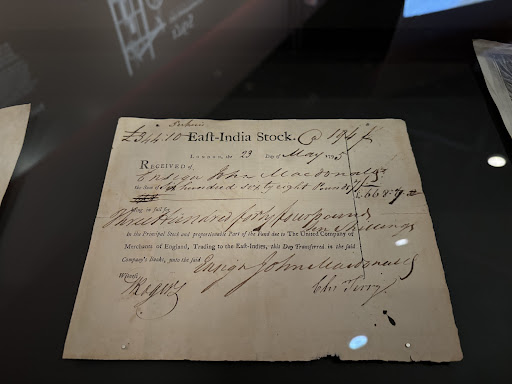 £344.10 East-India Stock. @ 194
London, the 23 Day of May 1795
Received of
Ensign John Macdonald
the Sum of Six hundred sixty eight Pounds
£668-7
being in full for
Three Hundred forty four pounds
ten Shillings
In the Principal Stock and proportionable Part of the Fund due to The United Company of
Merchants of England, Trading to the East-Indies, this Day Transferred in the said
Company's Books, unto the said Ensign John Macdonald
Witness